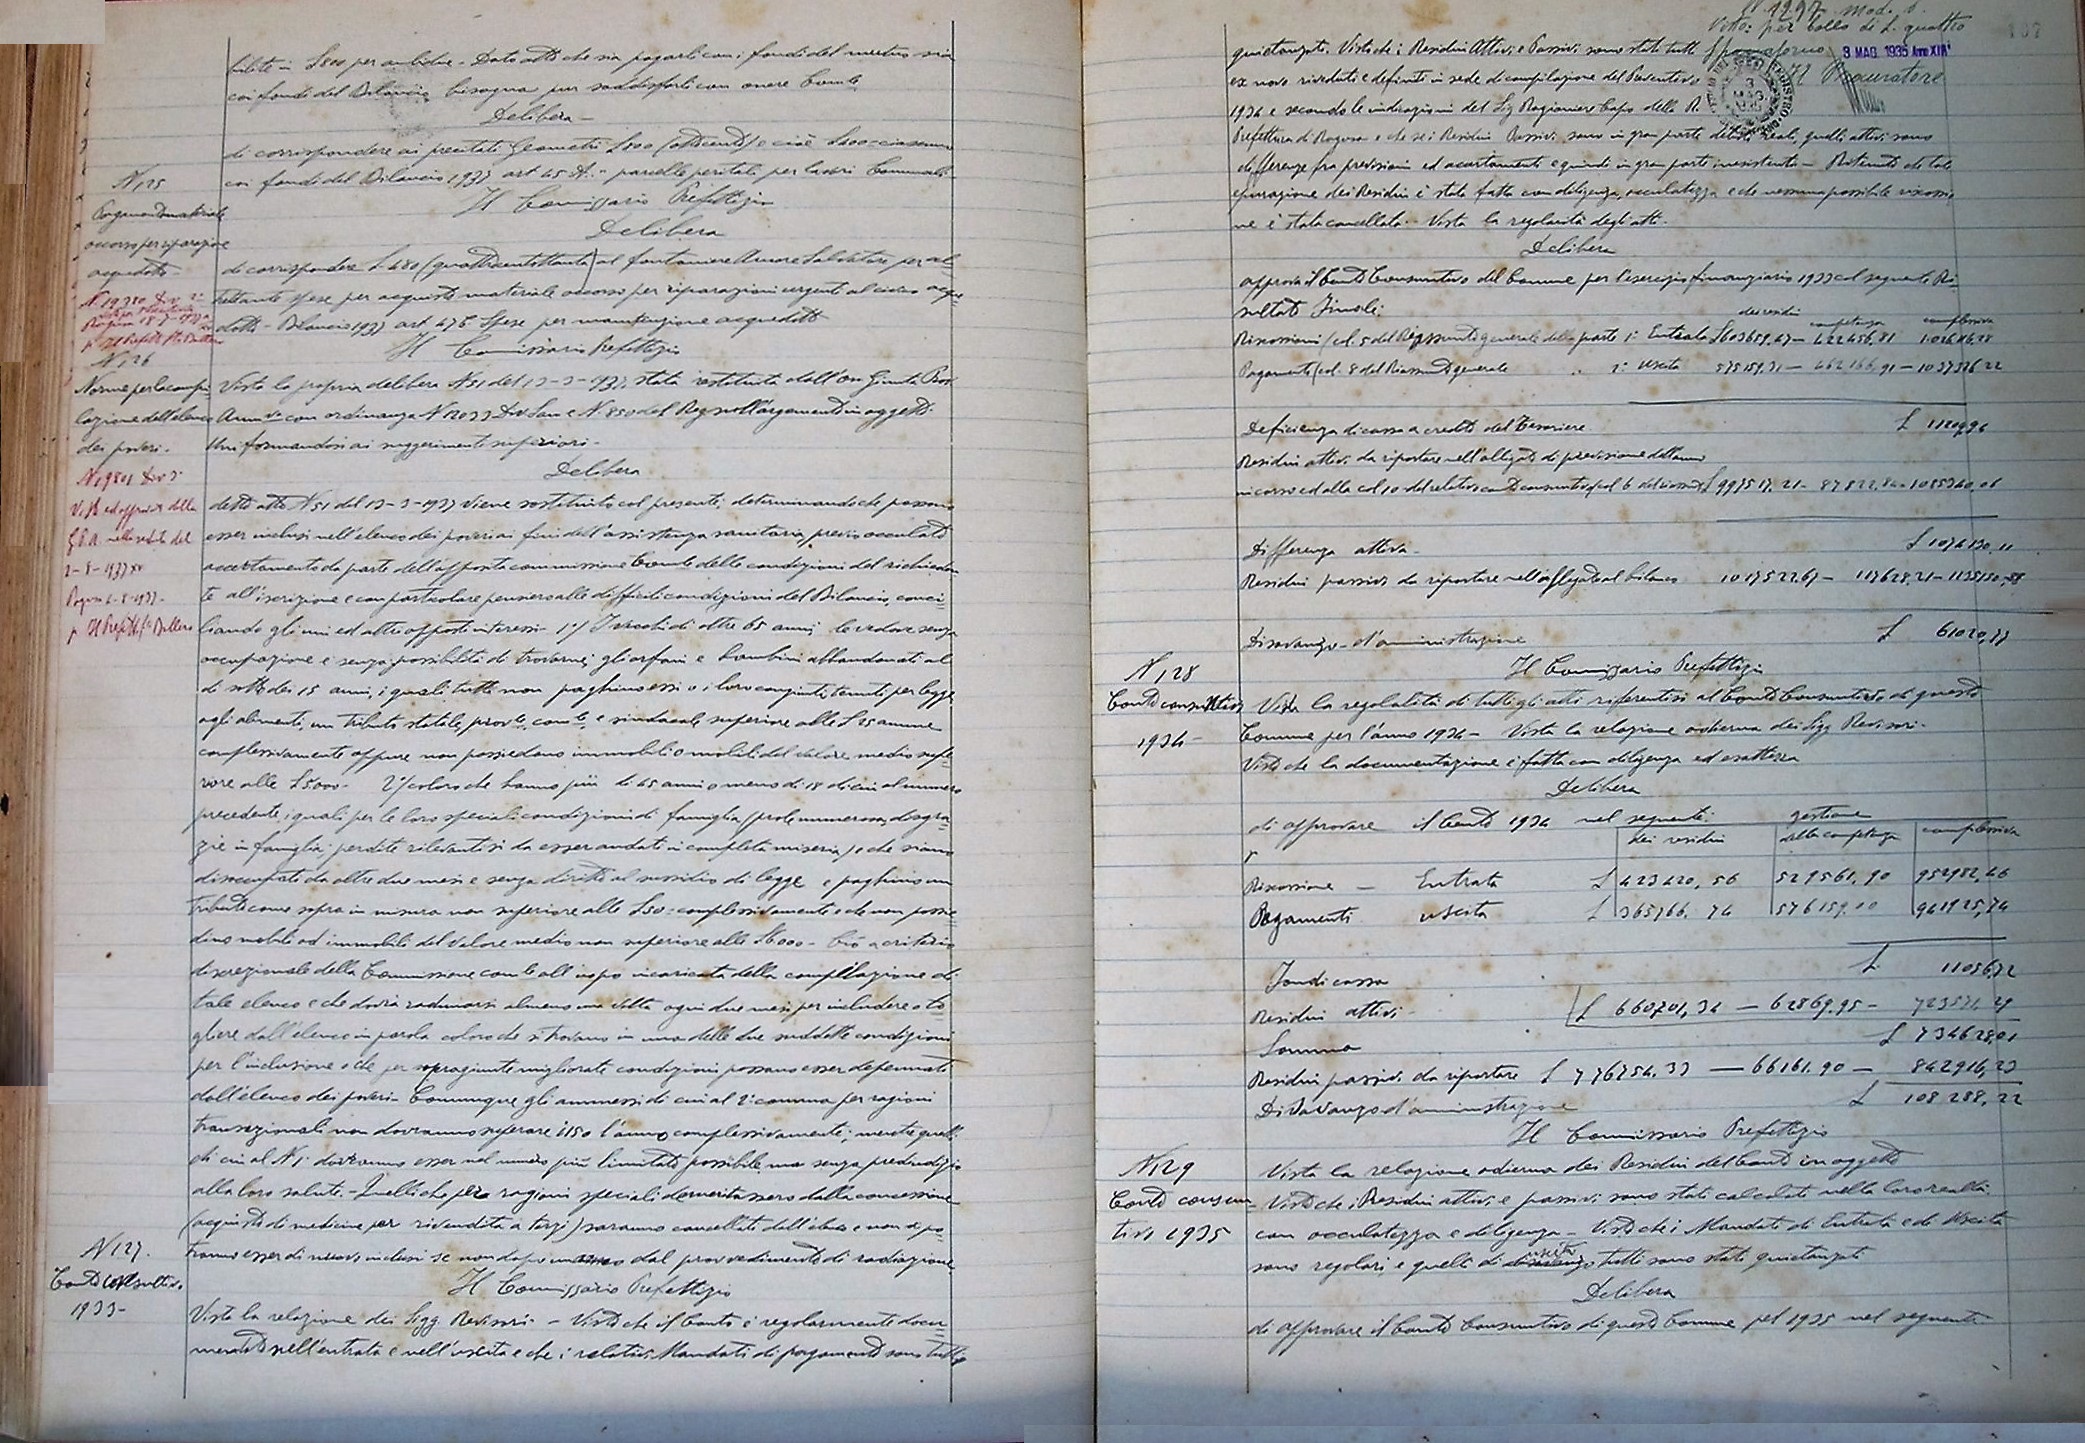 bilite in £800 per ambidue - Dato atto che sia pagarli con i fondi del mutuo sia
coi fondi del Bilancio bisogna pur soddisfarli con onere Com.le
Delibera -
di corrispondere ai precitati Geometri £800 (ottocento) e cioè £400= ciascuno
coi fondi del Bilancio 1937 art 45 - parcelle peritali per lavori Comunali.
Il Commissario Prefettizio
Delibera
N 125
Pagamento materiale
occorso per riparazione
acquedotto -
di corrispondere £ 480 (quattrocentottanta) al fontaniere Salvatore per al-
trettante spese per acquisto materiale occorso per riparazioni urgenti al civico acque
dotto - Bilancio 1937 art 47 Spese per manutenzione acquedotto
N 19380 Div 2ª
Ragusa 18-7-1937
p. Il Prefetto
Il Commissario Prefettizio
N 126
Norme per la compi
lazione dell'elenco
dei poveri -
Vista la propria delibera N 51 del 13-3-1937 stata restituita dall'On Giunta Prov
Amm.va con ordinanza N 12033 Div San e N 850 del Reg sull'argomento in oggetto.
Uniformandosi ai suggerimenti superiori -
Delibera
N 19801 Div 3ª
Visto ed approvato dalla
G.P.A. nella seduta del
2-8-1937 XV
Ragusa 6-8-1937-
p Il Prefetto
detto atto N 51 del 13-3-1937 viene sostituito col presente; determinando che possono
esser inclusi nell'elenco dei poveri ai fini dell'assistenza sanitaria, previo occulato
accertamento da parte dell'apposita commissione Com.le delle condizioni del richieden
te all'iscrizione e con particolare pensiero alle difficili condizioni del Bilancio, conci=
liando gli uni ed altri opposti interessi 1°) I vecchi di oltre 65 anni; le vedove senza
occupazione e senza possibilità di trovarne; gli orfani e bambini abbandonati al
di sotto dei 15 anni, i quali tutti non paghino essi o i loro congiunti, tenuti per legge
agli alimenti, un tributo statale, prov.le, com.le e sindacale superiore alle £25 annue
complessivamente oppure non possiedano immobili o mobili del valore medio supe=
riore alle £5000 - 2°) coloro che hanno più di 65 anni o meno di 18 di cui al numero
precedente, i quali per le loro speciali condizioni di famiglia (prole numerosa, disgra=
zie in famiglia, perdite rilevanti sì da esser andati in completa miseria) e che siano
disoccupati da oltre due mesi e senza diritto al sussidio di legge e paghino un
tributo come sopra in misura non superiore alle £50= complessivamente e che non possie
dino mobili ed immobili del valore medio non superiore alle £6000 - Ciò a criterio
discrezionale della Commissione com.le all'uopo incaricata della compilazione di
tale elenco e che dovrà radunarsi almeno una volta ogni due mesi per includere o to
gliere dall'elenco in parola coloro che si trovano in una delle due suddette condizioni
per l'inclusione o che per sopragiunte migliorate condizioni possano esser depennati
dall'elenco dei poveri - Comunque gli ammessi di cui al 2° comma per ragioni
transazionali non dovranno superare i 150 l'anno complessivamente; mentre quelli
di cui al N 1° dovranno esser nel numero più limitato possibile ma senza pregiudizio
alla loro salute. - Quelli che per ragioni speciali demeritassero dalla concessione
(acquisto di medicine per rivendita a terzi) saranno cancellati dall'elenco e non vi po
tranno esser di nuovo inclusi se non dopo un anno dal provvedimento di radiazione
Il Commissario Prefettizio
N 127.
Conto consuntivo
1933-
Vista la relazione dei Sigg Revisori - Visto che il Conto è regolarmente docu=
mentato nell'entrata e nell'uscita e che i relativi Mandati di pagamento sono tutti
N 1297 Mod. 1.
Visto: per bollo di £. quattro
Spaccaforno 3 MAG. 1935 Anno XIII°
Il Procuratore
187
quietanzati. Visto che i Residui Attivi e Passivi sono stati tutti
ex novo riveduti e definiti in sede di compilazione del Preventivo
1934 e secondo le indicazioni del Sig Ragioniere Capo della R
Prefettura di Ragusa e che se i Residui Passivi sono in gran parte debiti reali, quelli attivi sono
differenze fra previsioni ed accertamenti e quindi in gran parte inesistenti - Ritenuto che tale
epurazione dei Residui è stata fatta con diligenza, occulatezza e che nessuna possibile riscossio
ne è stata cancellata. - Vista la regolarità degli atti.
Delibera
approva il Conto Consuntivo del Comune per l'esercizio finanziario 1933 col seguente Ri-
sultati Finali:
dei residui competenza complessiva
Riscossioni (col. 5 del Riassunto generale della parte 1ª Entrata £603659,47 - 422456,81 1026116,28
Pagamenti (col. 8 del Riassunto generale " 2ª uscita 575159,31 - 462166,91 - 1037326,22
Deficienza di cassa a credito del Tesoriere £ 11209,94
Residui attivi da riportare nell'allegato di previsione dell'anno
in corso ed alla col 10 del relativo conto consuntivo (col 6 £ 997517,21 - 87822,84 - 1085340,05
Differenza attiva - £ 1074130,11
Residui passivi da riportare nell'allegato al bilancio 1017522,67 - 117628,21 - 1135150,88
Disavanzo d'amministrazione £ 61020,77
Il Commissario Prefettizio
N 128
Conto consuntivo
1934-
Vista la regolarità di tutti gli atti riferentisi al Conto Consuntivo di questo
Comune per l'anno 1934 - Vista la relazione odierna dei Sigg Revisori -
Visto che la documentazione è fatta con diligenza ed esattezza
Delibera
di approvare il Conto 1934 nel seguente: gestione
dei residui della competenza complessiva
Riscossione - Entrata £ 423420,56 529561,90 952982,46
Pagamenti uscita £ 365766,74 576159,00 941925,74
£ 11056,72
Fondi cassa
Residui attivi - £ 660701,34 - 62869,95 - 723571,29
Somma £ 734628,01
Residui passivi da riportare £ 776754,33 - 66161,90 - 842916,23
Disavanzo d'amministrazione £ 108288,22
Il Commissario Prefettizio
N 129
Conto consun
tivo 1935
Vista la relazione odierna dei Residui del Conto in oggetto
Visto che i Residui attivi e passivi sono stati calcolati nella loro realtà
con occulatezza e diligenza - Visto che i Mandati di Entrata e di Uscita
sono regolari e quelli di uscita tutti sono stati quietanzati
Delibera
di approvare il Conto Consuntivo di questo Comune pel 1935 nel seguente